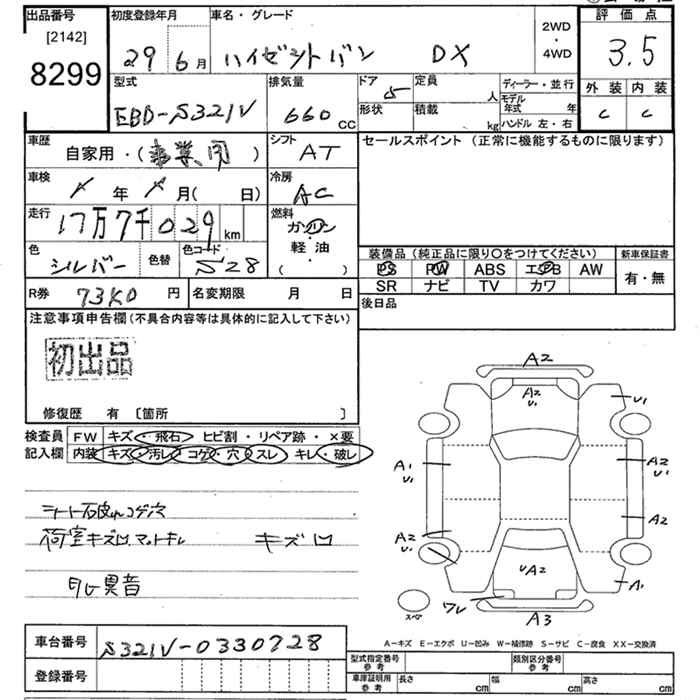 出品番号 初度登録年月 車名・グレード 2WD ・ 4WD 評価点
[2142]
8299
29 6月 ハイゼットバン DX 3.5
型式 排気量 ドア 定員 人 ディーラー・並行 外装 内装
EBD-S321V 660cc 5 形状 積載 kg モデル年式 年 C C
ハンドル 左・右
車歴 自家用・(事業用) シフト AT セールスポイント (正常に機能するものに限ります)
車検 年 月( 日) 冷房 AC
走行 17万7千029km 燃料 ガソリン
軽・油
( )
色 シルバー 色替 色コード S28
装備品 (純正品に限り○をつけてください) 新車保証書
PS PW ABS エアB AW 有・無
SR ナビ TV カワ
R券 円 名変期限 月 日 後日品
注意事項申告欄 (不具合内容等は具体的に記入して下さい)
初出品
修復歴 有 〔箇所 〕
検査員 FW キズ・飛石 ヒビ割・リペア跡・×要
記入欄 内装 キズ・汚レ・コゲ・穴・スレ キレ・破レ
シート破れコゲ穴
荷室キズ凹,マットキレ キズ凹
異音
A2
A2
U1
U1
A1
U1
A2
U1
A2
A2
U1
UA2
A1
ワレ
A3
スペア
A-キズ E-エクボ U-凹み W-補修跡 S-サビ C-腐食 XX-交換済
車台番号 S321V-0330728
登録番号
型式指定番号 参考 類別区分番号 参考
車庫証明用 参考 長さ cm 幅 cm 高さ cm